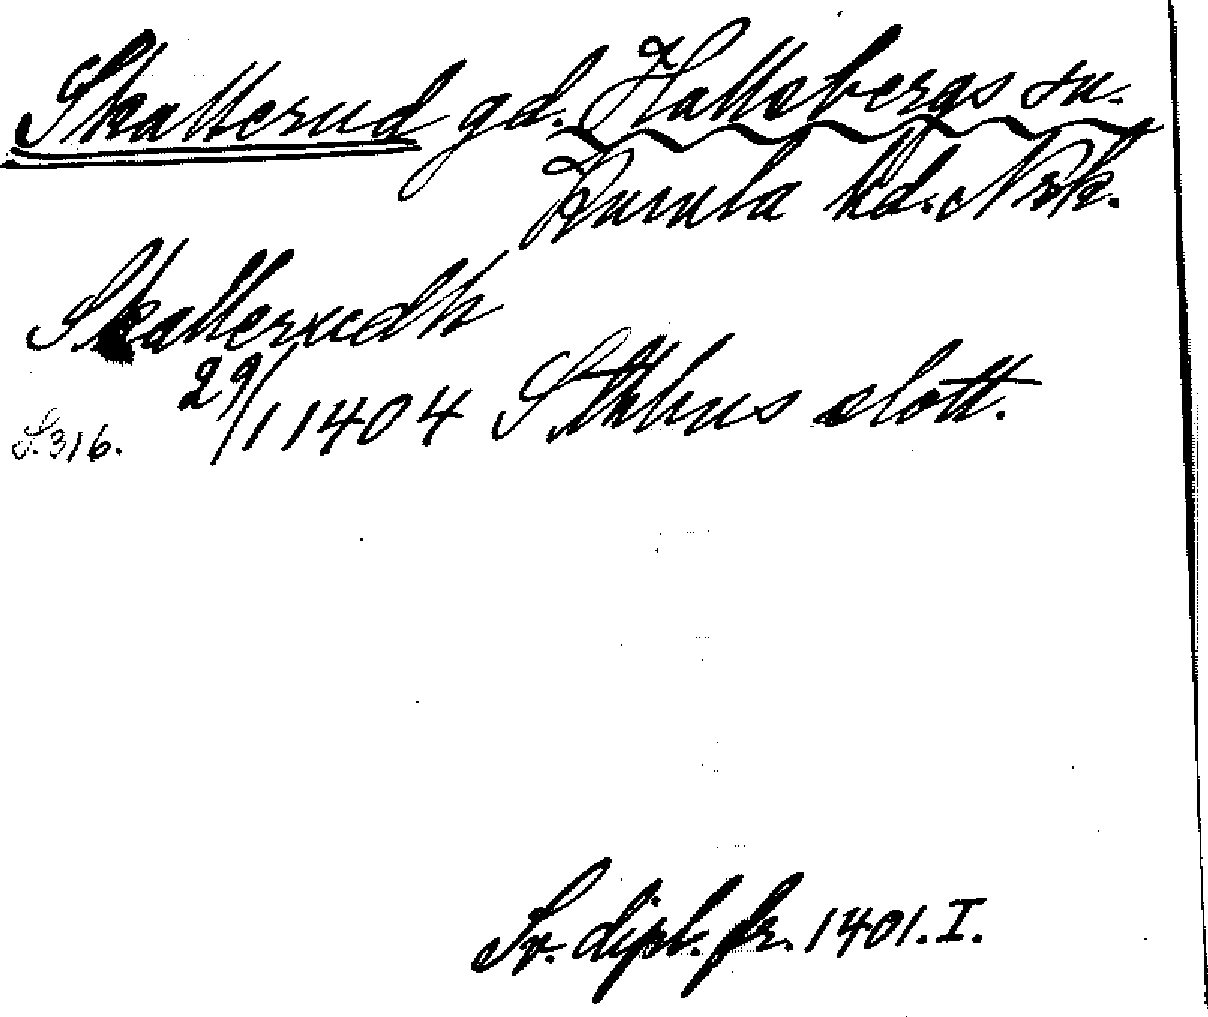 Skatterud gd. Hallsbergs sn.
Kumla hd. Nrk.
Skatterudh
29/1 1404 Sthlms slott.
S. 316.
Sv. dipl. fr. 1401. I.